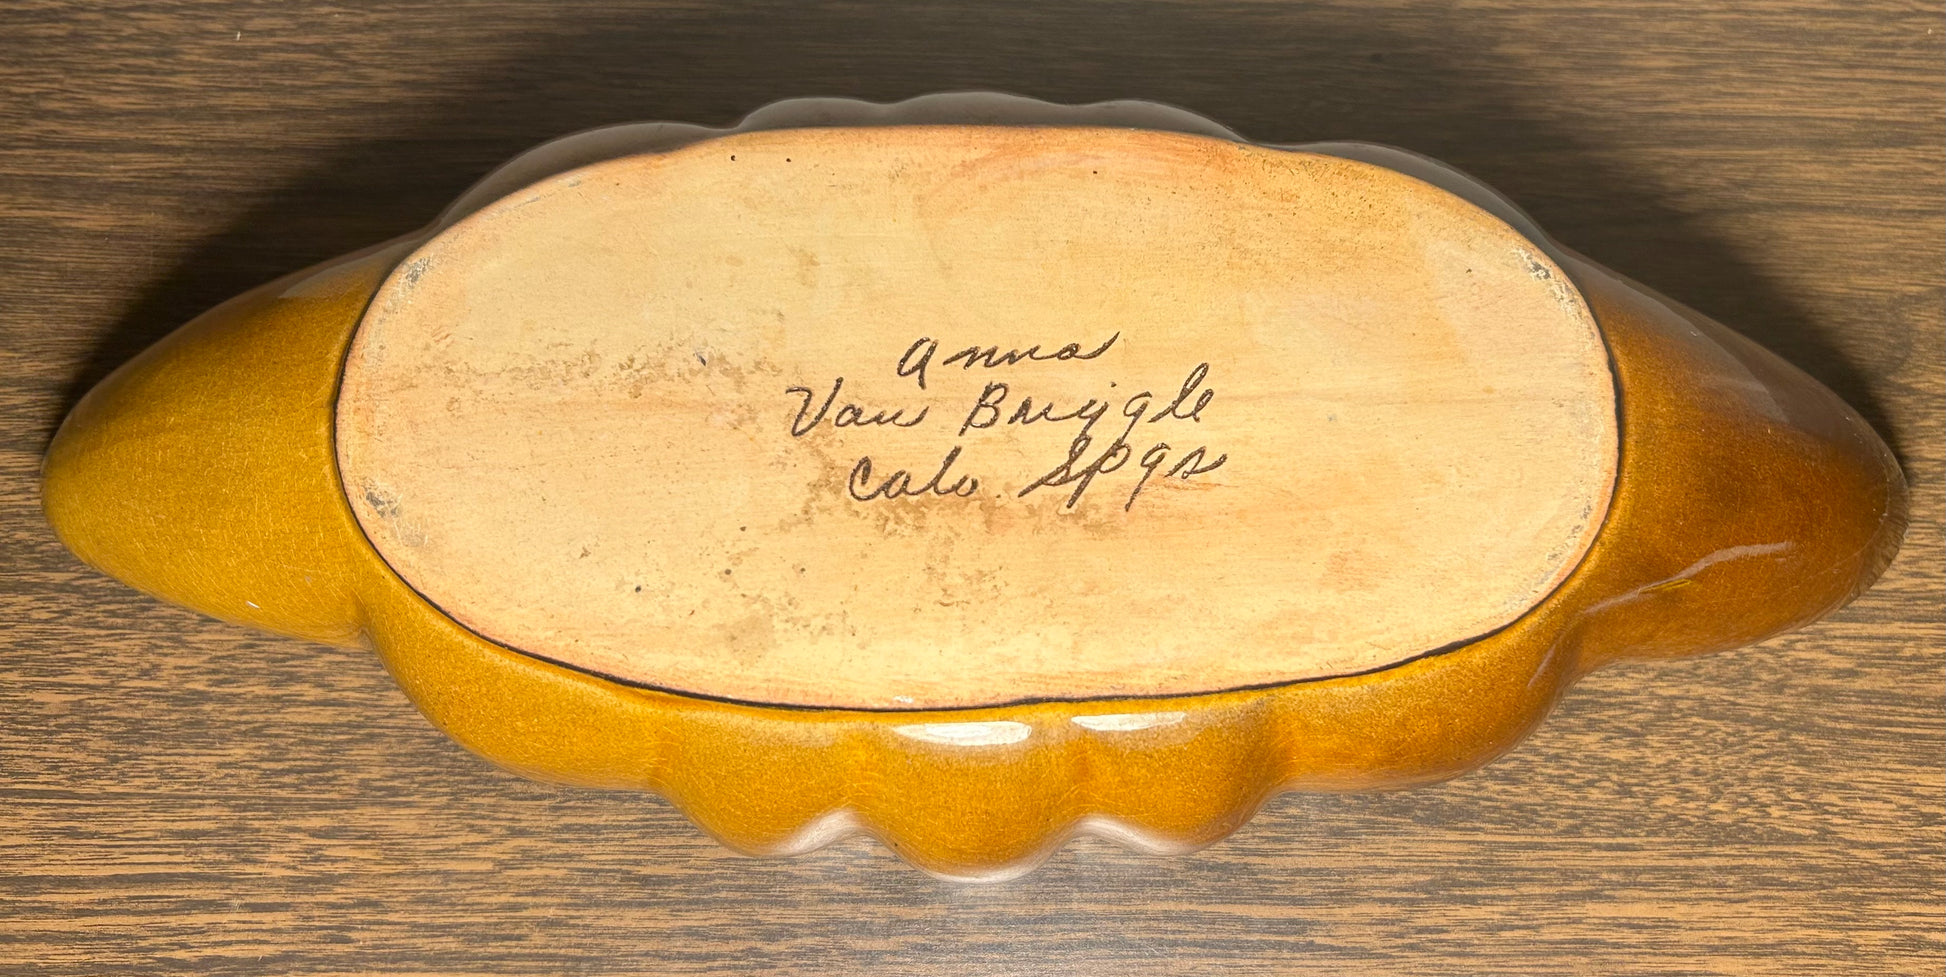 Anna
Van Briggle
Colo. Spgs